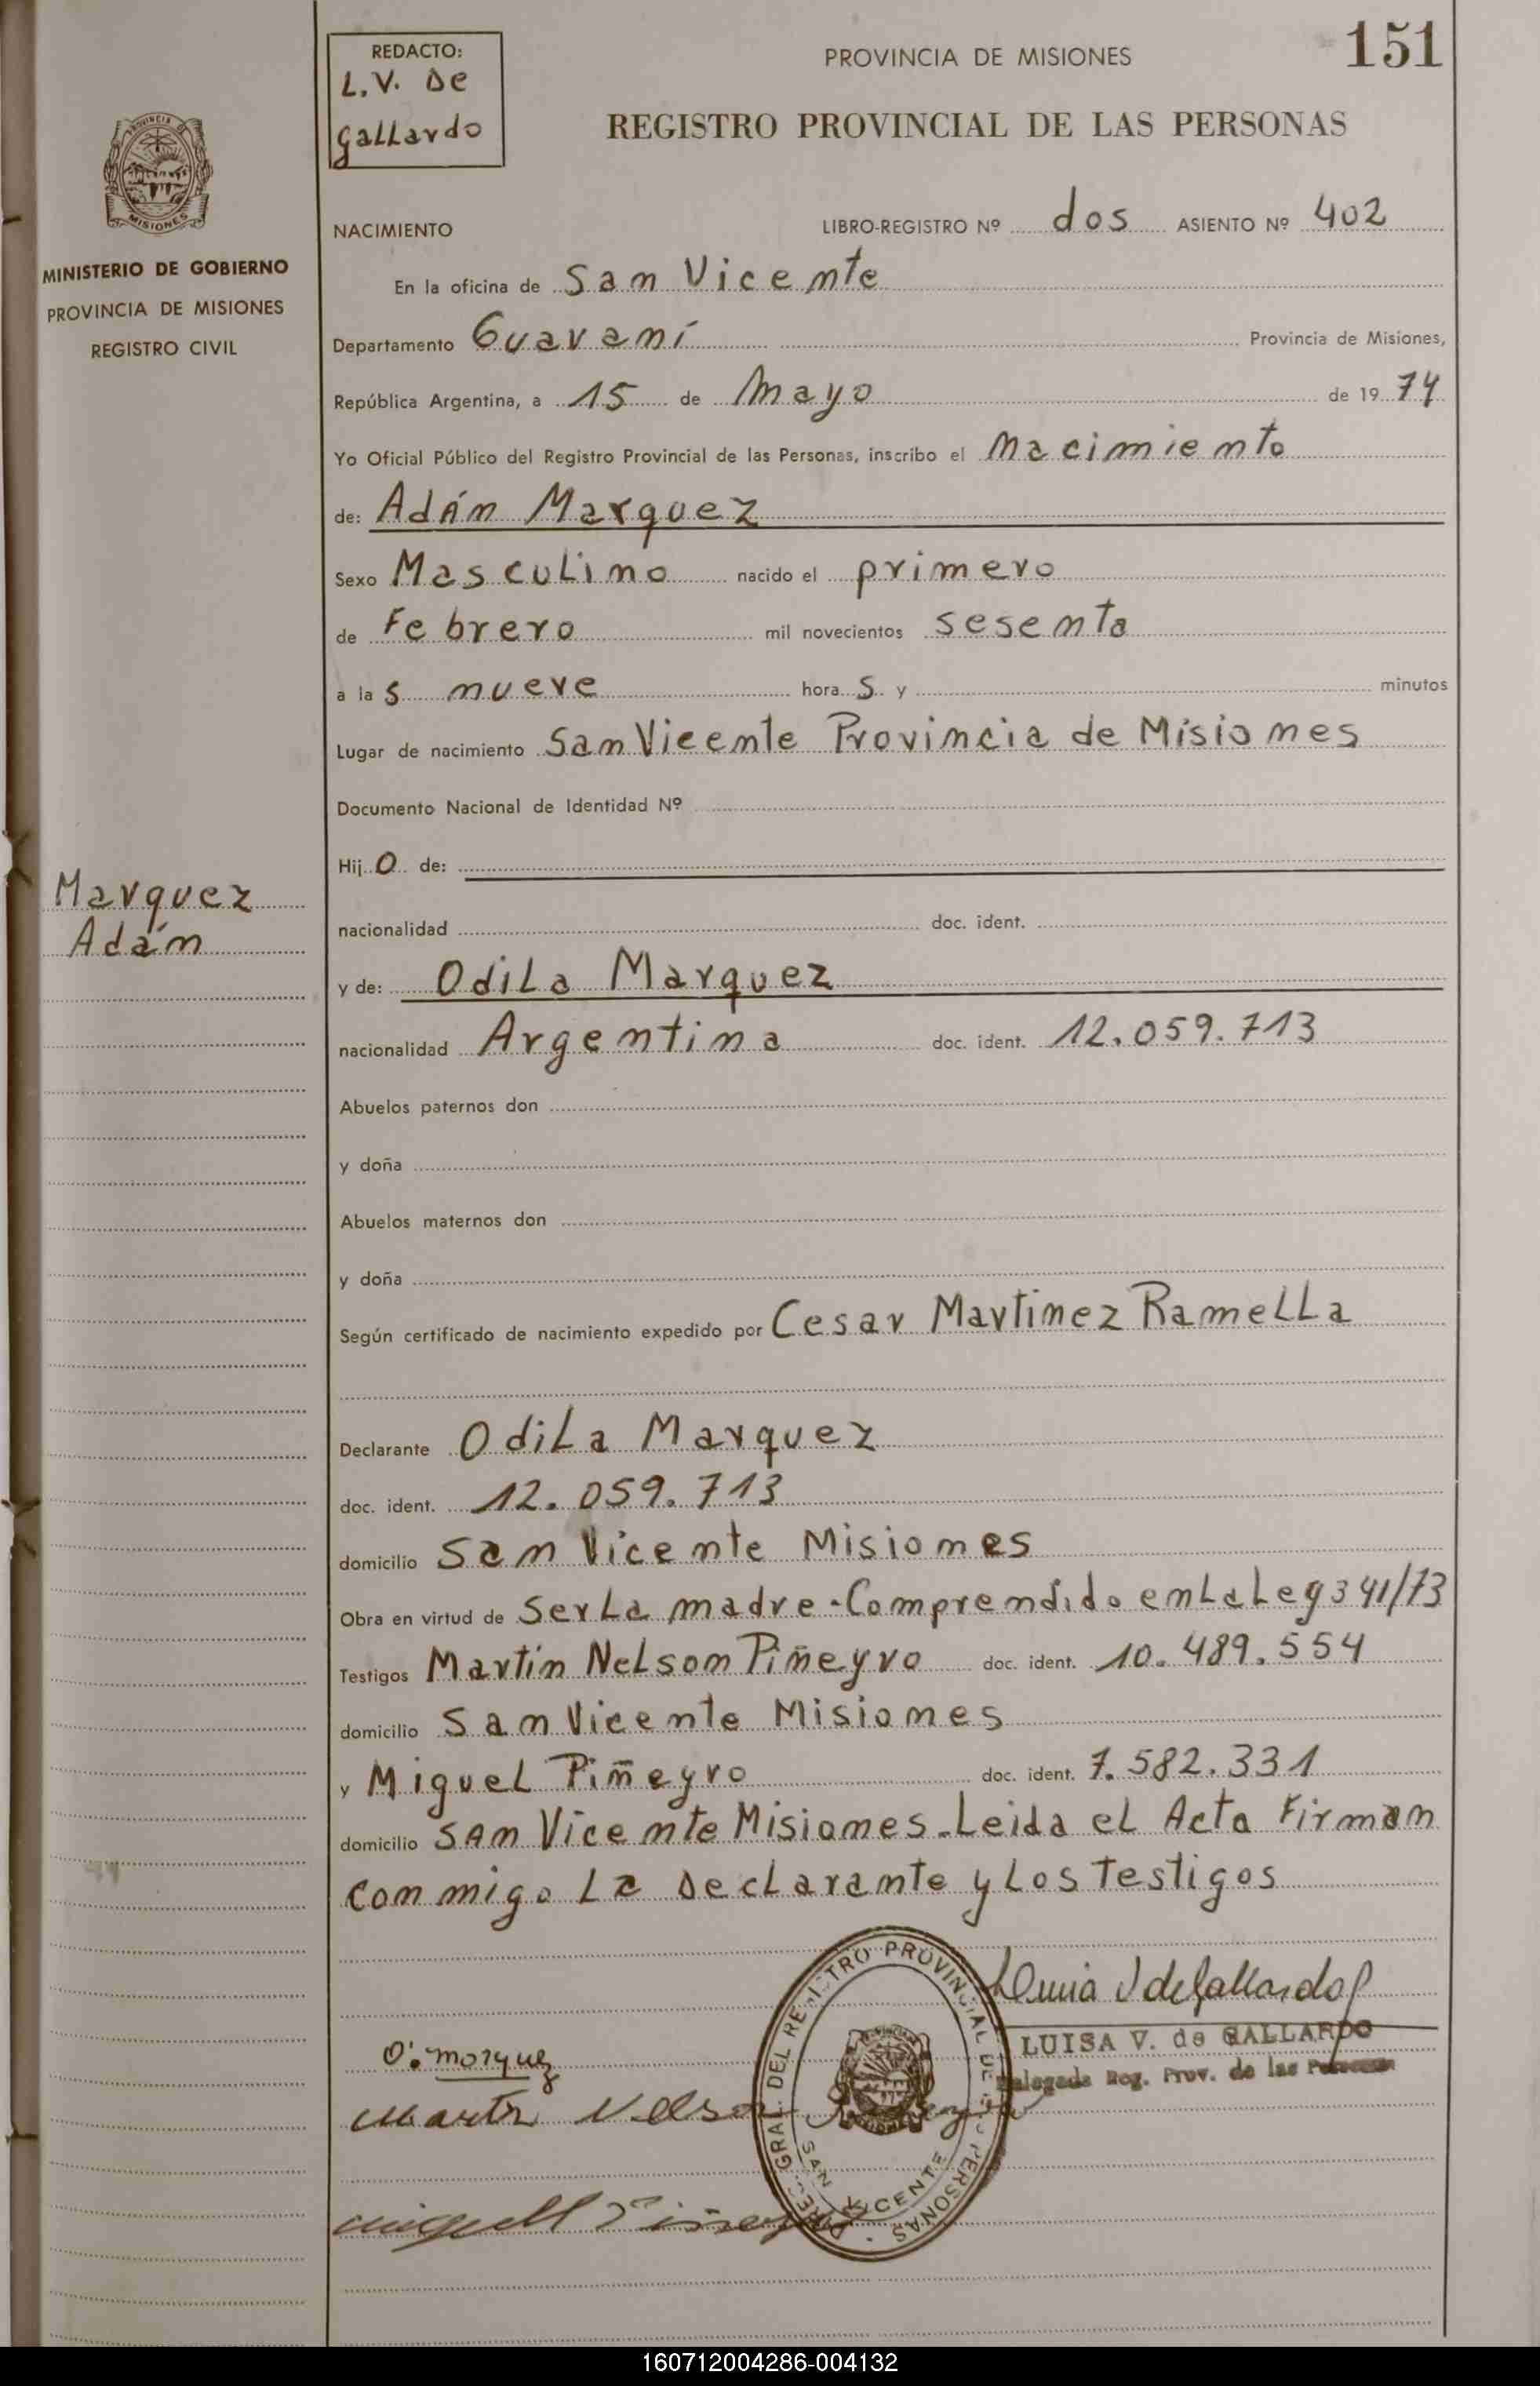 REDACTO:
L.V. De
Gallardo
PROVINCIA DE MISIONES
151
REGISTRO PROVINCIAL DE LAS PERSONAS
PROVINCIA
MISIONES
MINISTERIO DE GOBIERNO
PROVINCIA DE MISIONES
REGISTRO CIVIL
NACIMIENTO LIBRO-REGISTRO Nº dos ASIENTO Nº 402
En la oficina de San Vicente
Departamento Guaraní Provincia de Misiones,
República Argentina, a 15 de Mayo de 1974
Yo Oficial Público del Registro Provincial de las Personas, inscribo el Nacimiento
de: Adán Marquez
Sexo Masculino nacido el primero
de Febrero mil novecientos sesenta
a las nueve horas y minutos
Lugar de nacimiento San Vicente Provincia de Misiones
Documento Nacional de Identidad Nº
Hijo de:
Marquez
Adán
nacionalidad doc. ident.
y de: Odila Marquez
nacionalidad Argentina doc. ident. 12.059.713
Abuelos paternos don
y doña
Abuelos maternos don
y doña
Según certificado de nacimiento expedido por Cesar Martinez Ramella
Declarante Odila Marquez
doc. ident. 12.059.713
domicilio San Vicente Misiones
Obra en virtud de Ser La madre - Comprendido en La Leg 341/73
Testigos Martín Nelson Piñeyro doc. ident. 10.489.554
domicilio San Vicente Misiones
y Miguel Piñeyro doc. ident. 7.582.331
domicilio San Vicente Misiones - Leida el Acta Firman
con migo La Declarante y Los Testigos
LUISA V. de GALLARDO
Delegada Reg. Prov. de las Personas
O. Marquez
Martin Nelson Piñeyro
Miguel Piñeyro
GRAL DEL REGISTRO PROVINCIAL DE LAS PERSONAS
SAN VICENTE
160712004286-004132